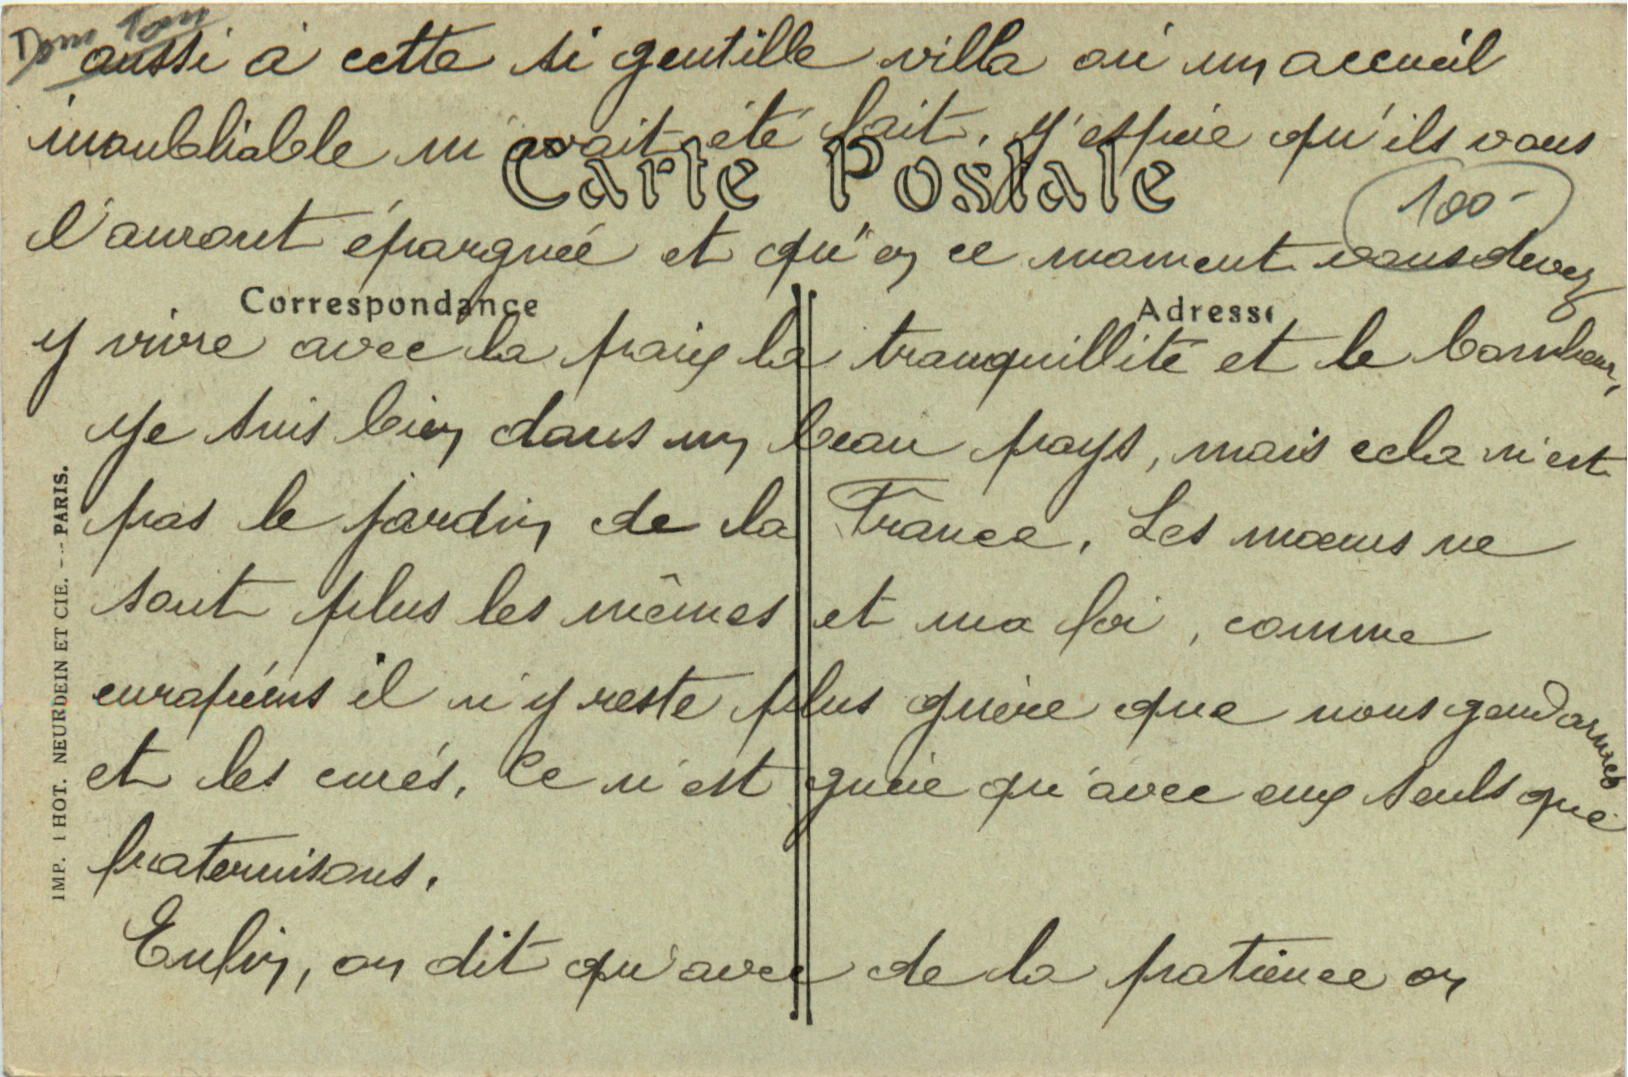 Dom Tom
aussi à cette si gentille villa où un accueil
inoubliable m'avait été fait. J'espère qu'ils vous
Carte Postale
100-
l'auront épargnée et qu'en ce moment vous devez
Correspondance
Adresse
y vivre avec la paix la tranquillité et le bonheur,
Je suis bien dans un beau pays, mais cela n'est
pas le jardin de la France. Les mœurs ne
sont plus les mêmes et ma foi, comme
européens il n'y reste plus guère que nous gendarmes
et les curés. Ce n'est guère qu'avec eux seuls que
fraternisons.
Enfin, on dit qu'avec de la patience on
IMP. PHOT. NEURDEIN ET CIE. -- PARIS.